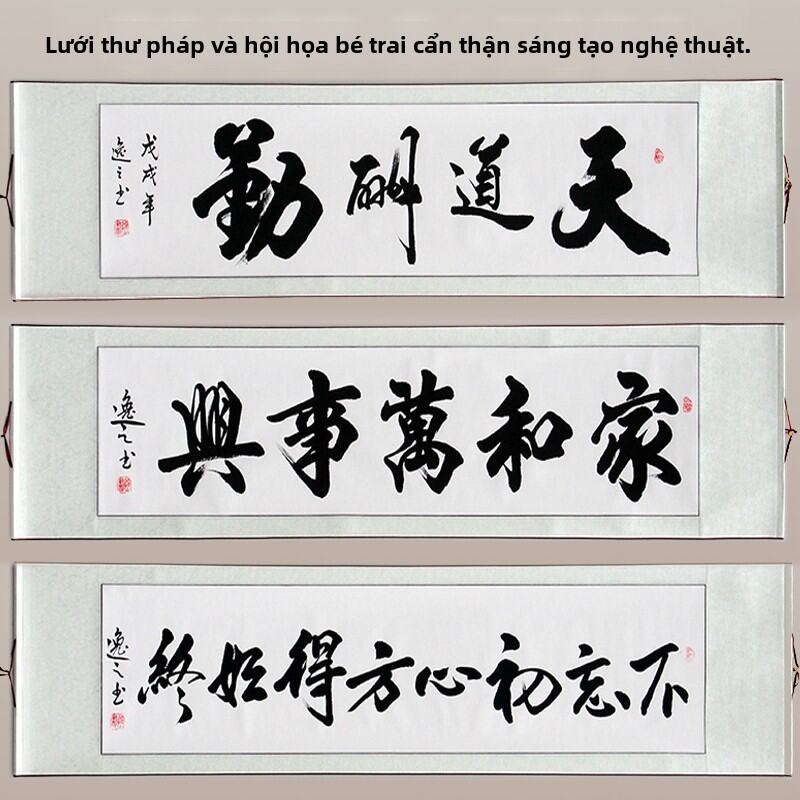 Lưới thư pháp và hội họa bé trai cẩn thận sáng tạo nghệ thuật.
天道酬勤
戊戌年
逸之书
家和萬事興
逸之书
不忘初心方得始終
逸之书